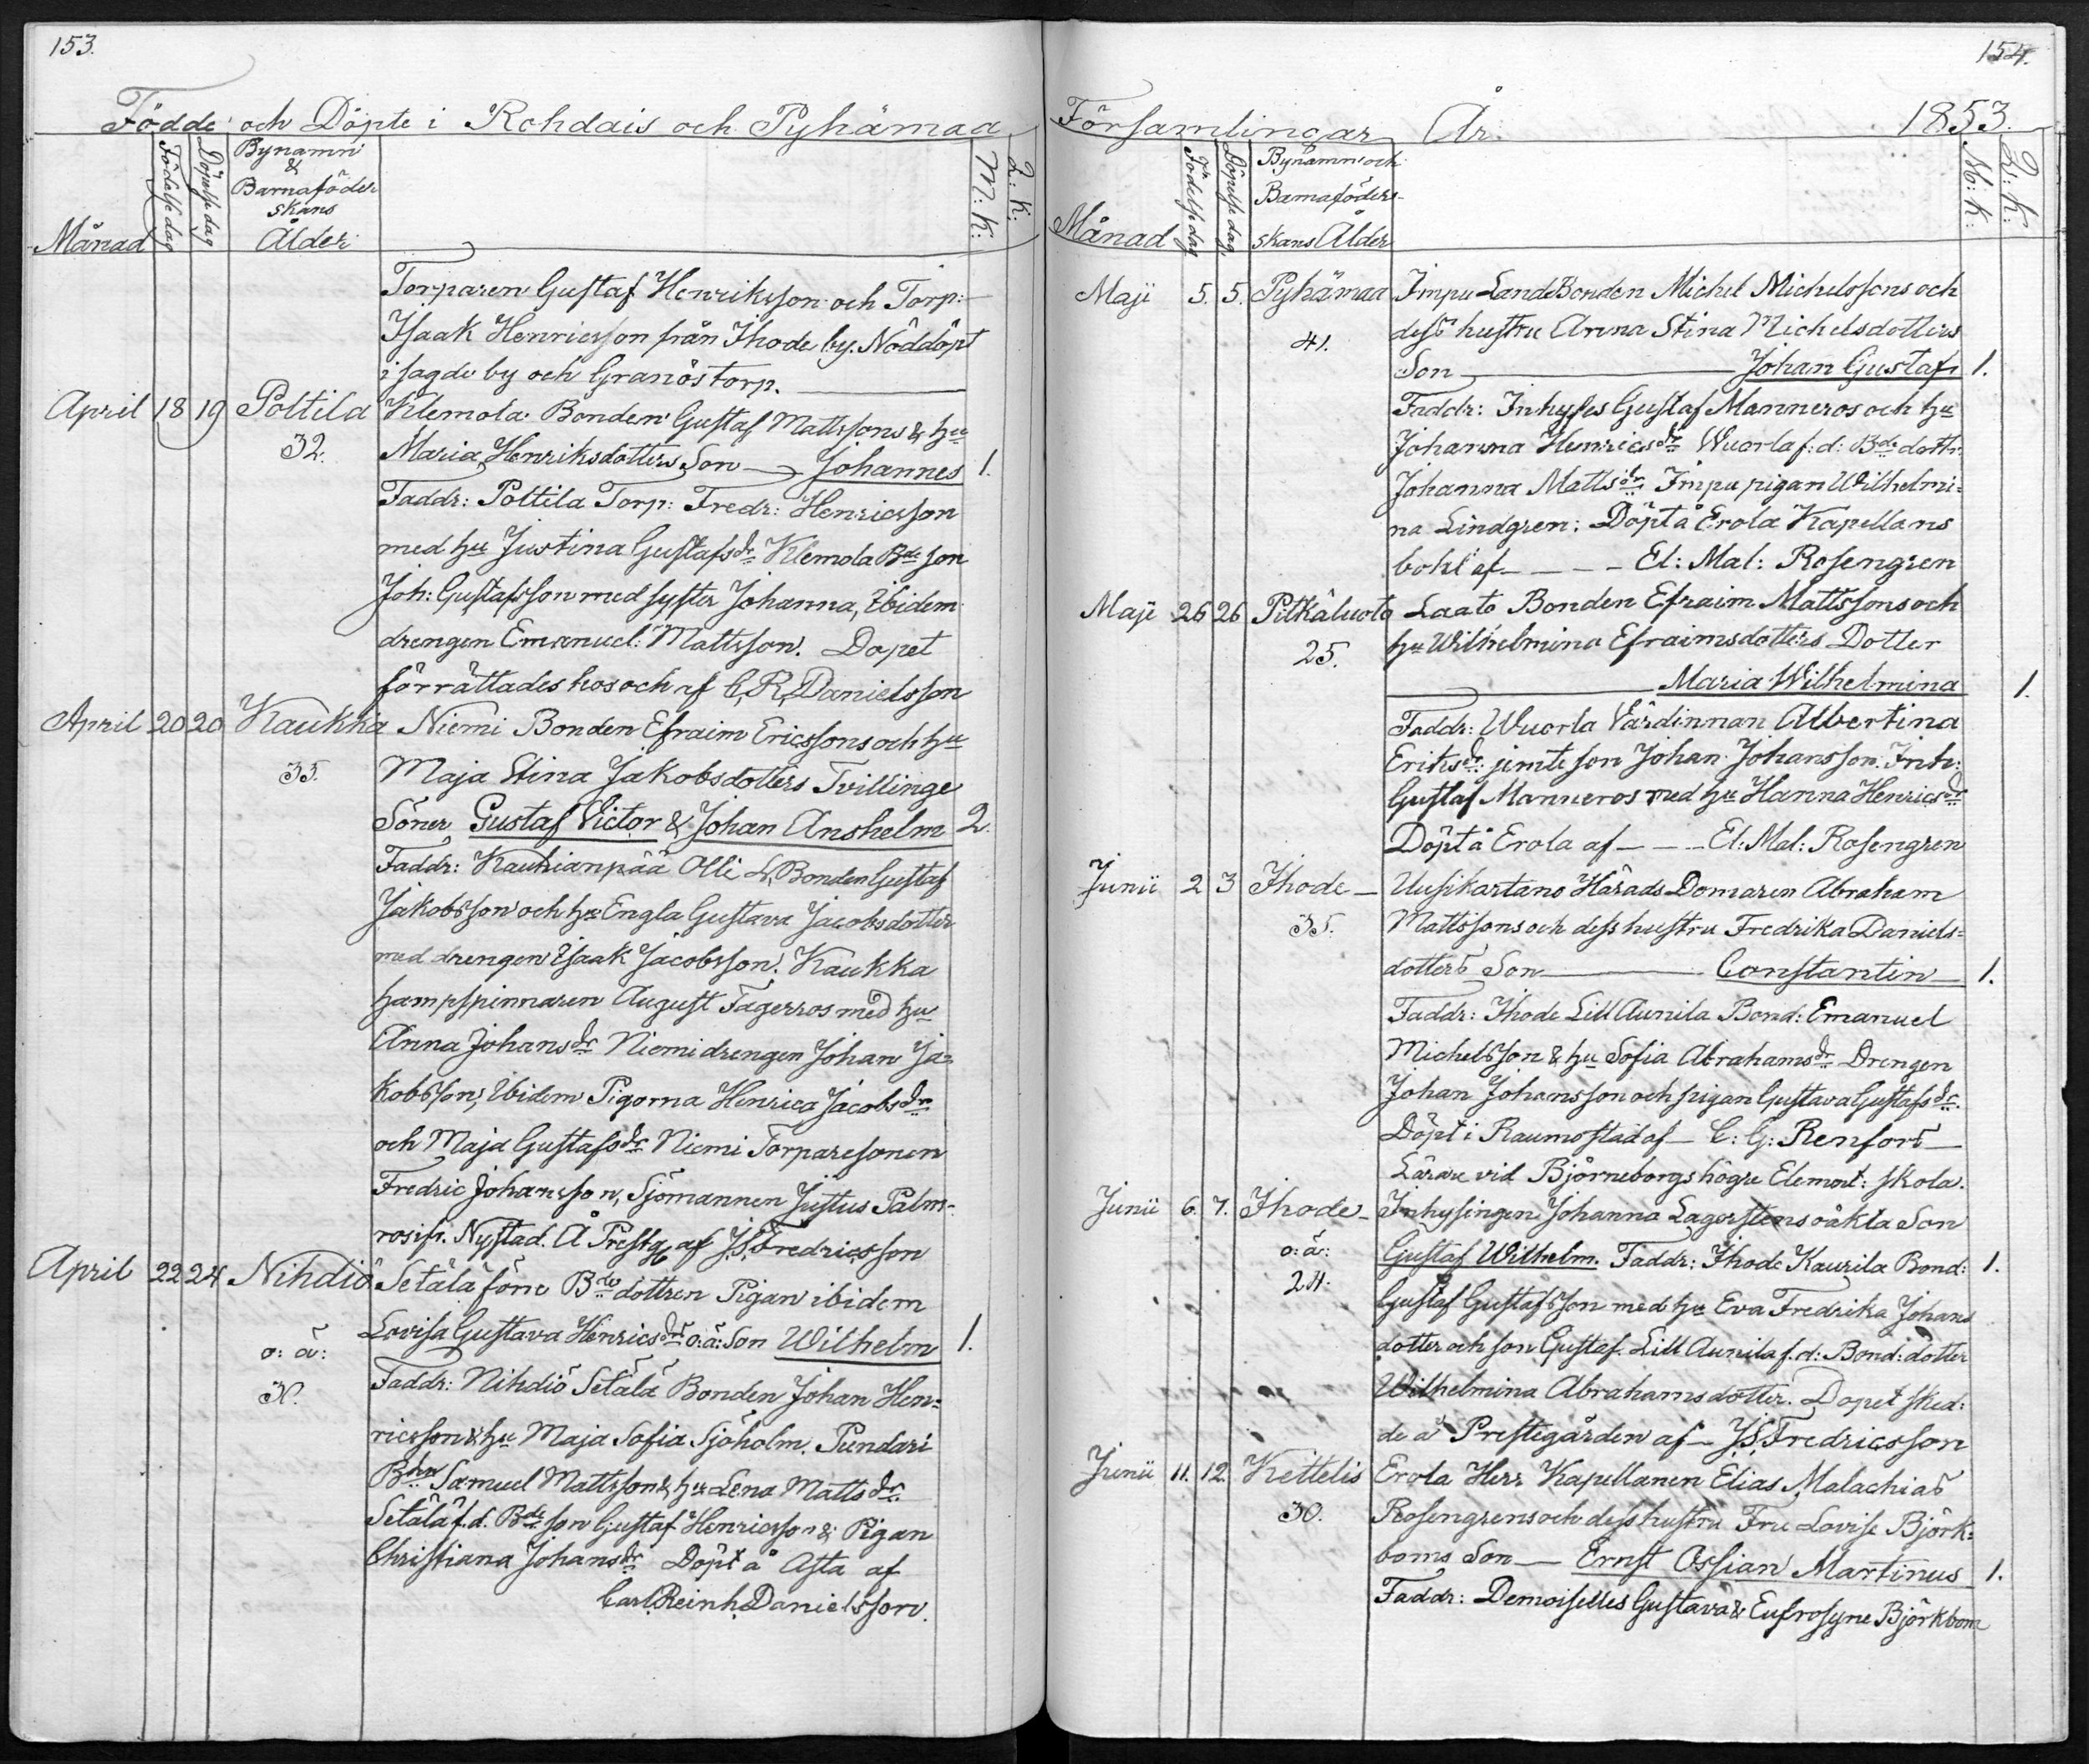 153.
Födde och Döpte i Rohdais och Pyhämaa
Månad
Födelse dag
Döpelse dag
Bynamn
&
Barnaföder
skans
Ålder
M: K:
Q: K:
Torparen Gustaf Henriksson och Torp:
Isaak Henricsson från Ihode by. Nöddöpt
i sagde by och Granös torp.
April 18 19 Poltila Klemola Bonden Gustaf Mattssons & hu
32. Maria Henriksdotters Son Johannes 1.
Faddr: Poltila Torp: Fredr: Henricsson
med hu Justina Gustafsdr Klemola Bde son
Joh: Gustafsson med syster Johanna, Ibidem
drengen Emanuel Mattsson. Dopet
förrättades hos och af C. R. Danielsson
April 20 20 Kaukka Niemi Bonden Efraim Ericssons och hu
35. Maja Stina Jakobsdotters Tvillinge
Söner Gustaf Victor & Johan Anshelm 2.
Faddr: Kauhianpää Olli L. Bonden Gustaf
Jakobsson och hu Engla Gustava Jacobsdotter
med drengen Isaak Jacobsson. Kaukka
hampspinnaren August Fagerros med hu
Anna Johansdr Niemi drengen Johan Ja=
kobsson, Ibidem Pigorna Henrica Jacobsdr
och Maja Gustafsdr Niemi Torparesonen
Fredric Johansson, Sjömannen Justus Palm-
ros fr. Nystad. Å Prestg. af J. S. Fredricsson
April 22 24 Nihdiö Setälä före Bde dottren Pigan ibidem
o: ä: Lovisa Gustava Henricsdrs o:ä: Son Wilhelm 1.
Faddr: Nihdiö Setälä Bonden Johan Hen=
ricsson & hu Maja Sofia Sjöholm. Pundari
Bdn Samuel Mattsson & hu Lena Mattsdr
Setälä f.d. Bde son Gustaf Henricsson & Pigan
Christiana Johansdr Döpt å Asta af
Carl Reinh. Danielsson.
154.
Församlingar År 1853.
Månad
Födelse dag
Döpelse dag
Bynamn och
Barnaföder-
skans Ålder
M: k:
Q: k:
Maji 5. 5. Pyhämaa Impu Lands Bonden Michel Michelssons och
41. dess hustru Anna Stina Michelsdotters
Son Johan Gustaf 1.
Faddr: Inhyses Gustaf Manneros och hu
Johanna Henricsdr Wuorla f: d: Bde dottr.
Johanna Mattsdr Impu pigan Wilhelmi=
na Lindgren: Döpt å Erola Kapellans
bohl af El: Mal: Rosengren
Maji 25 26 Pitkäluoto Laato Bonden Efraim Mattssons och
25. hu Wilhelmina Efraimsdotters Dotter
Maria Wilhelmina 1.
Faddr: Wuorla Värdinnan Albertina
Eriksdr: jemte son Johan Johansson. Inh:
Gustaf Manneros med hu Hanna Henricsdr
Döpt å Erola af El: Mal: Rosengren
Junii 2 3 Ihode Uusikartano Härads Domaren Abraham
35. Mattssons och dess hustru Fredrika Daniels=
dotters Son Constantin 1.
Faddr: Ihode Lill Aunila Bond: Emanuel
Michelsson & hu Sofia Abrahamsdr Drengen
Johan Johansson och pigan Gustava Gustafsdr.
Döpt i Raumo stad af C: G: Renfors
Lärare vid Björneborgs högre Element: skola.
Junii 6. 7. Ihode Inhysingen Johanna Lagerstens oäkta Son
o: ä: Gustaf Wilhelm. Faddr: Ihode Kaurila Bond: 1.
24. Gustaf Gustafsson med hu Eva Fredrika Johans
dotter och son Gustaf. Lill Aunila f. d: Bond: dotter
Wilhelmina Abrahamsdotter. Dopet sked:
de å Prestegården af J. S. Fredricsson
Junii 11. 12. Kettelis Erola Herr Kapellanen Elias Malachias
30. Rosengrens och dess hustru Fru Lovise Björk=
boms Son Ernst Ossian Martinus 1.
Faddr: Demoiselles Gustava & Eufrosyne Björkbom